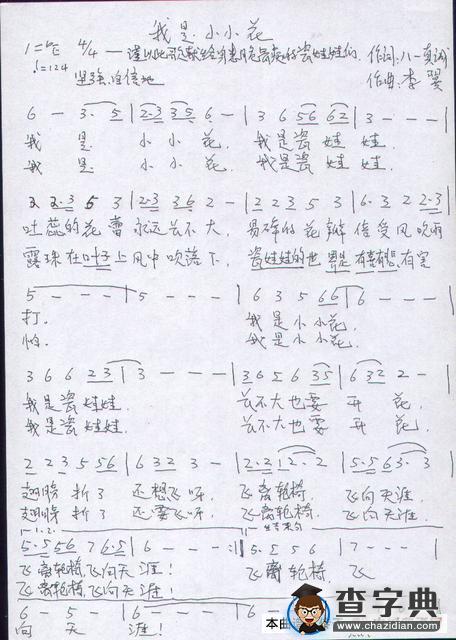 我是小小花
1=♭E 4/4 — 谨以此歌献给 的瓷娃娃们 作词:八一真诚
♩=124 坚强、自信地 作曲:李翼
6 - 3· 5 | 2·3 3 5 6 - | 3 6 5 6 6 2 | 3 - - - |
我 是 小 小 花, 我是瓷 娃 娃.
我 是 小 小 花, 我是瓷 娃 娃.
2 2·3 5 3 | 2·3 3 6 2 - | 2 2 3 5 3 | 6· 3 2 2·3 |
吐蕊的花 蕾 永远长不大, 易碎的花瓣 像受风吹雨
露珠在叶子上风中吹落下, 瓷娃娃的世界是有喜有悲有害
5 - - - | 5 - - - | 6 3 5 6 6 | 6 - - - |
打. 我是小小花,
怕. 我是小小花,
3 6 6 2 3 | 3 - - - | 3 6 5 6 3 5 | 6 3 2 2 - |
我是瓷娃娃. 长不大也要 开 花,
我是瓷娃娃. 长不大也要 开 花,
2 2 3 5 5 6 | 6 3 2 3 - | 2·2 1 2· 2 | 5·5 6 3· 3 |
翅膀 折了 还想飞呀, 飞离轮椅, 飞向天涯.
翅膀 折了 还要飞呀, 飞离轮椅, 飞向天涯.
1.2. 结束句
5·5 5 6 7 6·5 | 6 - - - :‖ 5· 5 5 6 | 7 - - - |
飞离轮椅飞向天 涯! 飞离轮椅, 飞
飞离轮椅飞向天 涯!
6 - 5 - | 6 - - - | 6 - - -
向 天 涯!
本曲
查字典
www.chazidian.com